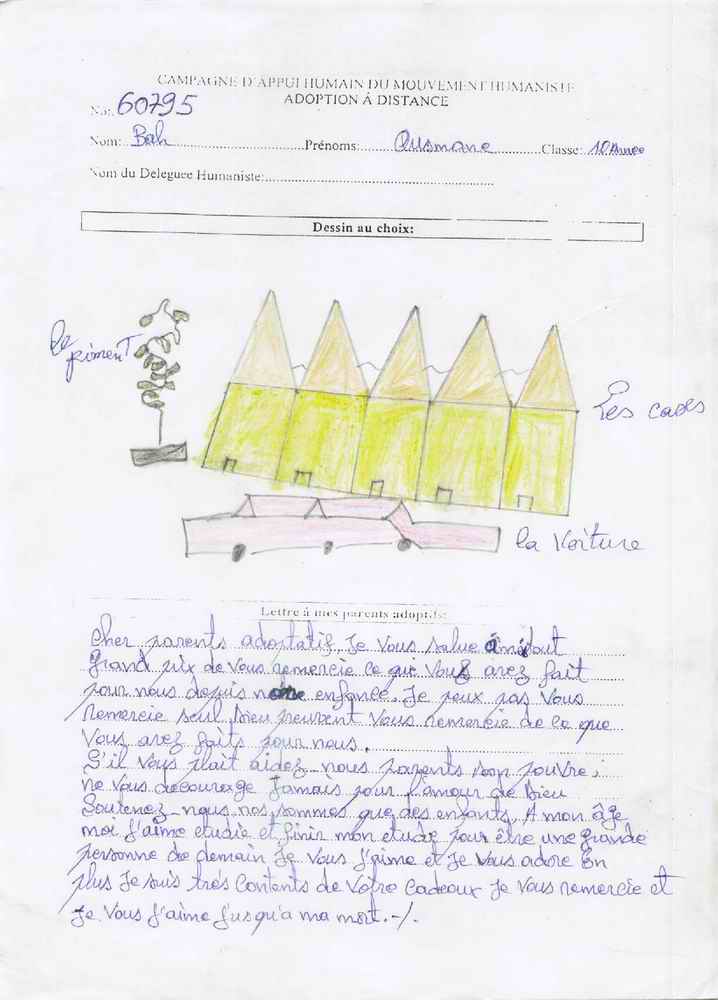 CAMPAGNE D'APPUI HUMAIN DU MOUVEMENT HUMANISTE
ADOPTION À DISTANCE
No: 60795
Nom: Bah Prénoms: Ousmane Classe: 10 Année
Nom du Deleguee Humaniste:
Dessin au choix:
le piment
Les cases
la Voiture
Lettre à mes parents adoptifs:
cher parents adoptatif, Je vous salue
Grand prix de vous remercie ce que vous avez fait
pour nous depuis notre enfance. Je peux pas Vous
remercie seul Dieu peuvent Vous remercie de ce que
Vous avez faits pour nous.
S'il vous plait aidez nous parents son pouvre,
ne vous decourage Jamais pour l'amour de Dieu
Soutenez nous nos sommes que des enfants. A mon âge
moi J'aime etudie et finir mon etude pour être une grande
personne de demain Je Vous J'aime et Je Vous adore En
plus Je suis très Contents de Votre cadeaux Je Vous remercie et
Je Vous J'aime Jusqu'a ma mort.-/.